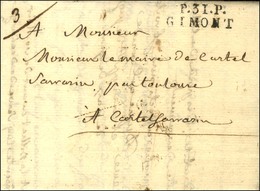 3
P.31.P.
GIMONT
A Monsieur
Monsieur le maire de Castel
Sarrasin, par toulouse
A Castelsarrasin